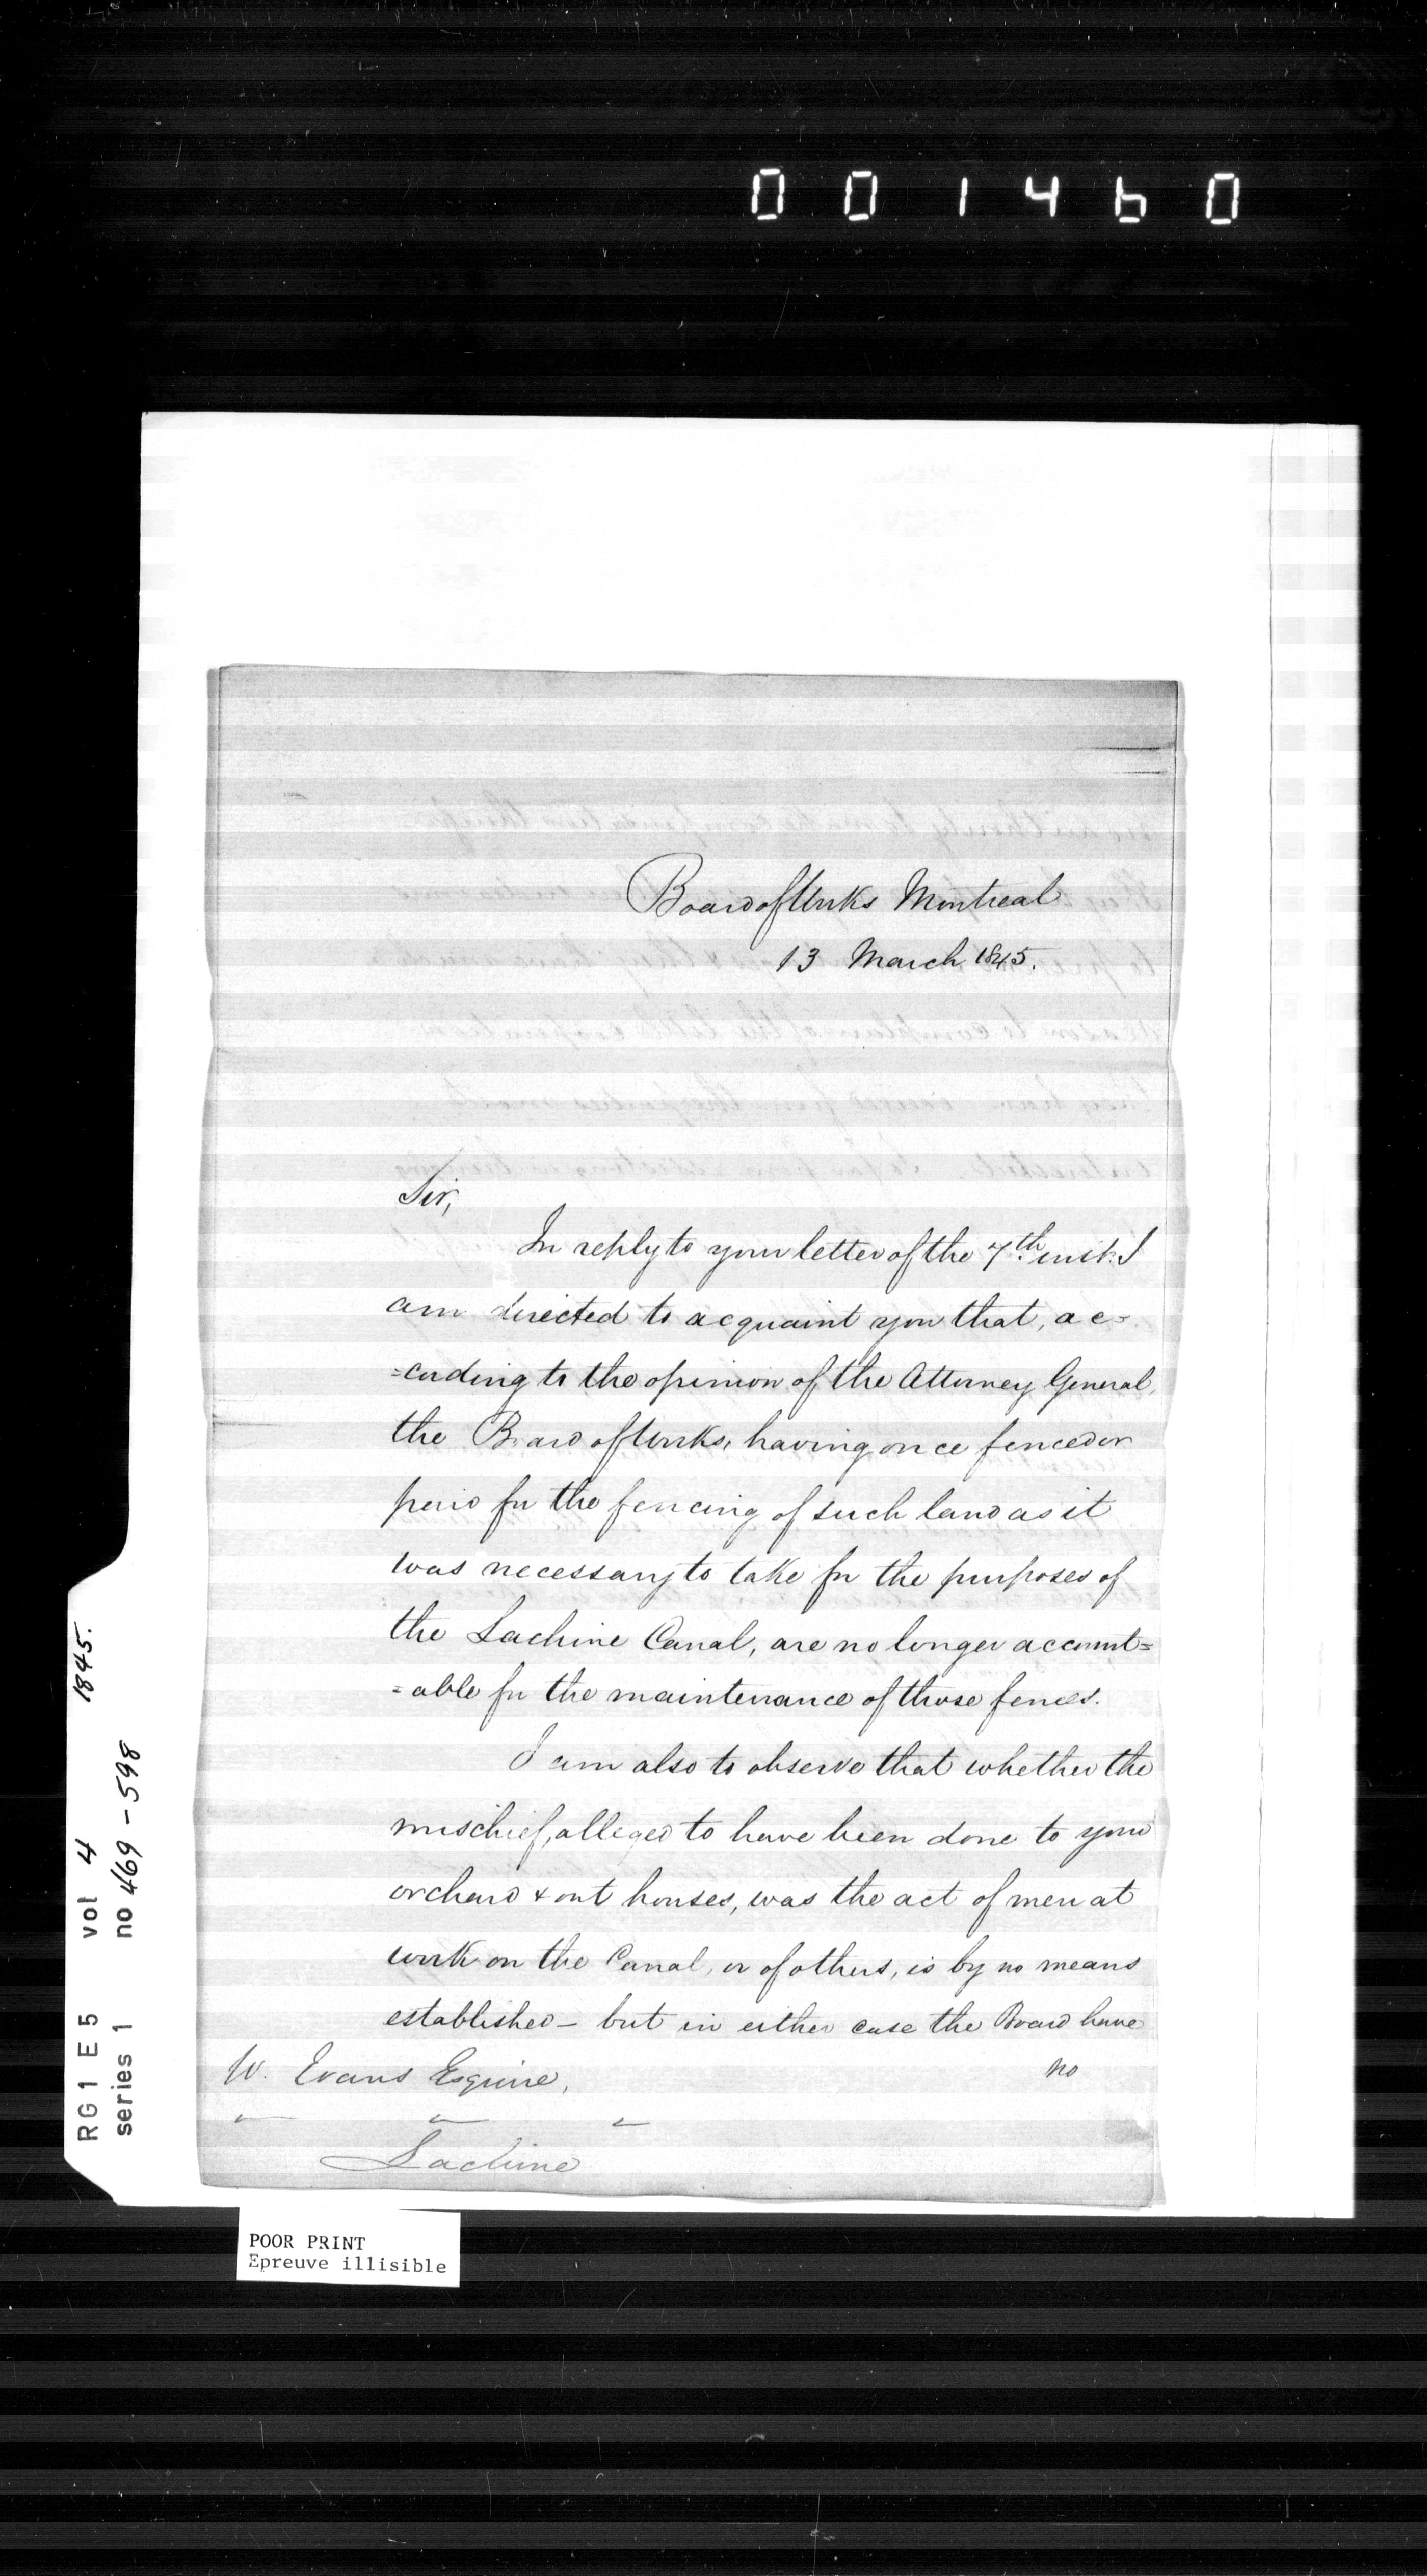 001460
Board of Works Montreal
13 March 1845.
Sir,
In reply to your letter of the 7th inst. I
am directed to acquaint you that, ac=
=cording to the opinion of the Attorney General,
the Board of Works, having once fenced or
paid for the fencing of such land as it
was necessary to take for the purposes of
the Lachine Canal, are no longer account=
=able for the maintenance of those fences.
I am also to observe that whether the
mischief, alleged to have been done to your
orchard & out houses, was the act of men at
work on the Canal, or of others, is by no means
established – but in either case the Board have
no
W. Evans Esquire,
Lachine
RG1 E5 vol 4 1845.
series 1 no 469-598
POOR PRINT
Epreuve illisible